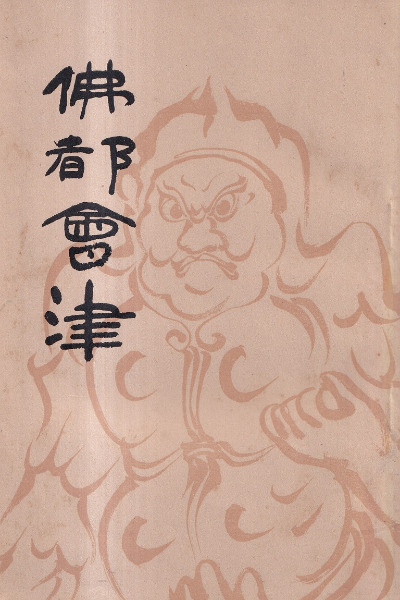 佛都會津